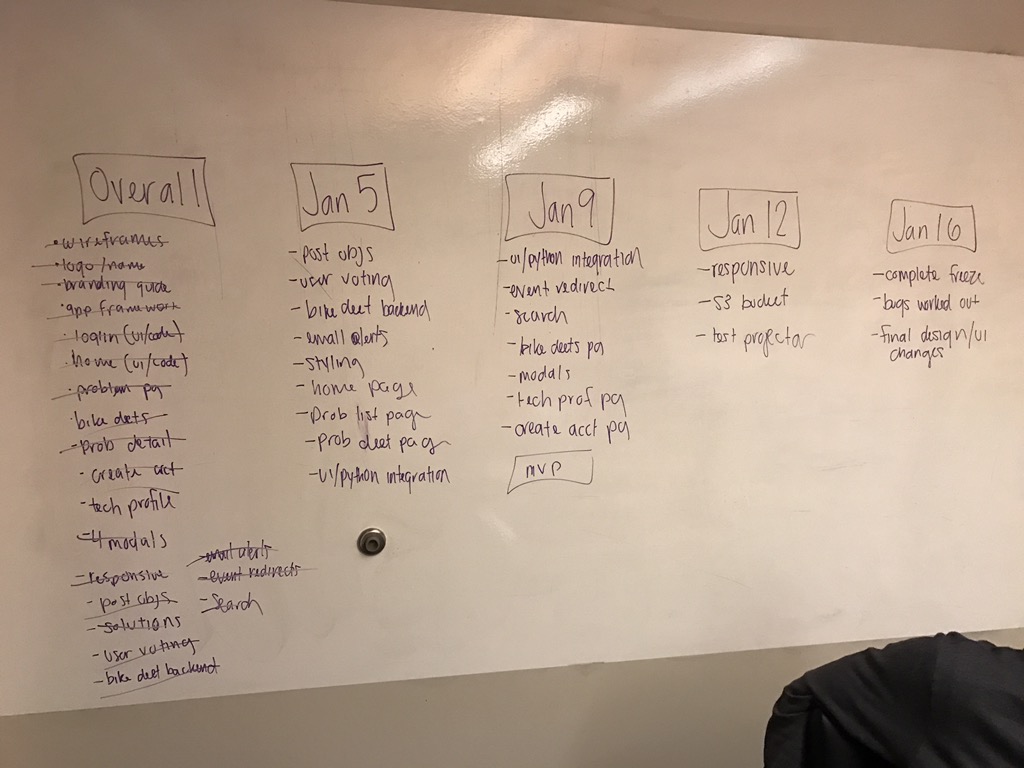 Overall
• wireframes
• logo/name
- branding guide
• app framework
• login (ui/code)
• home (ui/code)
• problem pg
• bike dets
- prob detail
- create act
- tech profile
- 4 modals
- responsive
- post objs
- solutions
- user voting
- bike deet backend
- email alerts
- event redirects
- search
Jan 5
- post objs
- user voting
- bike deet backend
- email alerts
- styling
- home page
- Prob list page
- prob deet page
- UI/python integration
Jan 9
- ui/python integration
- event redirect
- search
- bike deets pg
- modals
- tech prof pg
- create acct pg
MVP
Jan 12
- responsive
- S3 bucket
- test projector
Jan 16
- complete freeze
- bugs worked out
- final design/UI
changes